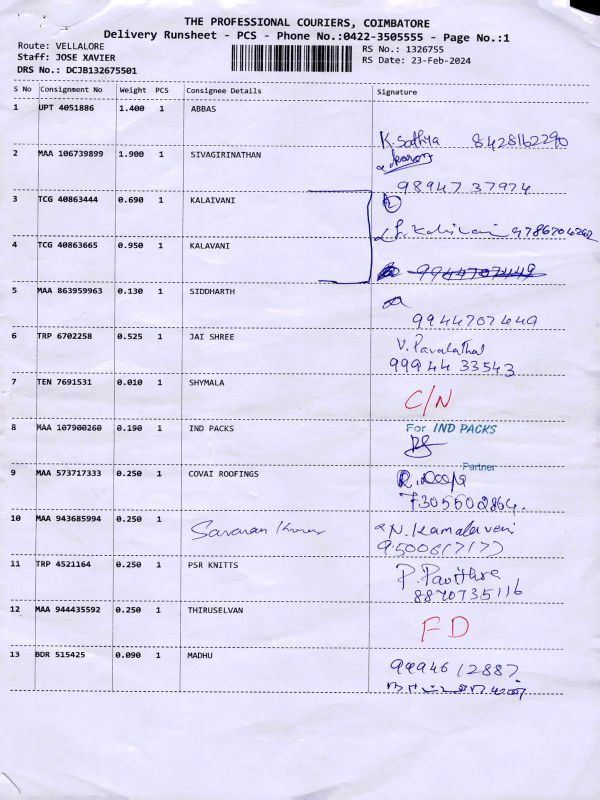 THE PROFESSIONAL COURIERS, COIMBATORE
Delivery Runsheet - PCS - Phone No.:0422-3505555 - Page No.:1
Route: VELLALORE
Staff: JOSE XAVIER
DRS No.: DCJB132675501
RS No.: 1326755
RS Date: 23-Feb-2024
S No Consignment No Weight PCS Consignee Details Signature
1 UPT 4051886 1.400 1 ABBAS
K. Sathya 8428162290
2 MAA 106739899 1.900 1 SIVAGIRINATHAN
98947 37974
3 TCG 40863444 0.690 1 KALAIVANI
9786704262
4 TCG 40863665 0.950 1 KALAVANI
9944707449
5 MAA 863959963 0.130 1 SIDDHARTH
9944707449
6 TRP 6702258 0.525 1 JAI SHREE
V. Pavalathal
99944 33543
7 TEN 7691531 0.010 1 SHYMALA
C/N
8 MAA 107900260 0.190 1 IND PACKS
For IND PACKS
Partner
9 MAA 573717333 0.250 1 COVAI ROOFINGS
R. Deepa
7305502864.
10 MAA 943685994 0.250 1 Saravan Kumar
N. Kamalaveni
9500617177
11 TRP 4521164 0.250 1 PSR KNITTS
P. Pavithra
8870735116
12 MAA 944435592 0.250 1 THIRUSELVAN
FD
13 BDR 515425 0.090 1 MADHU
9994612887